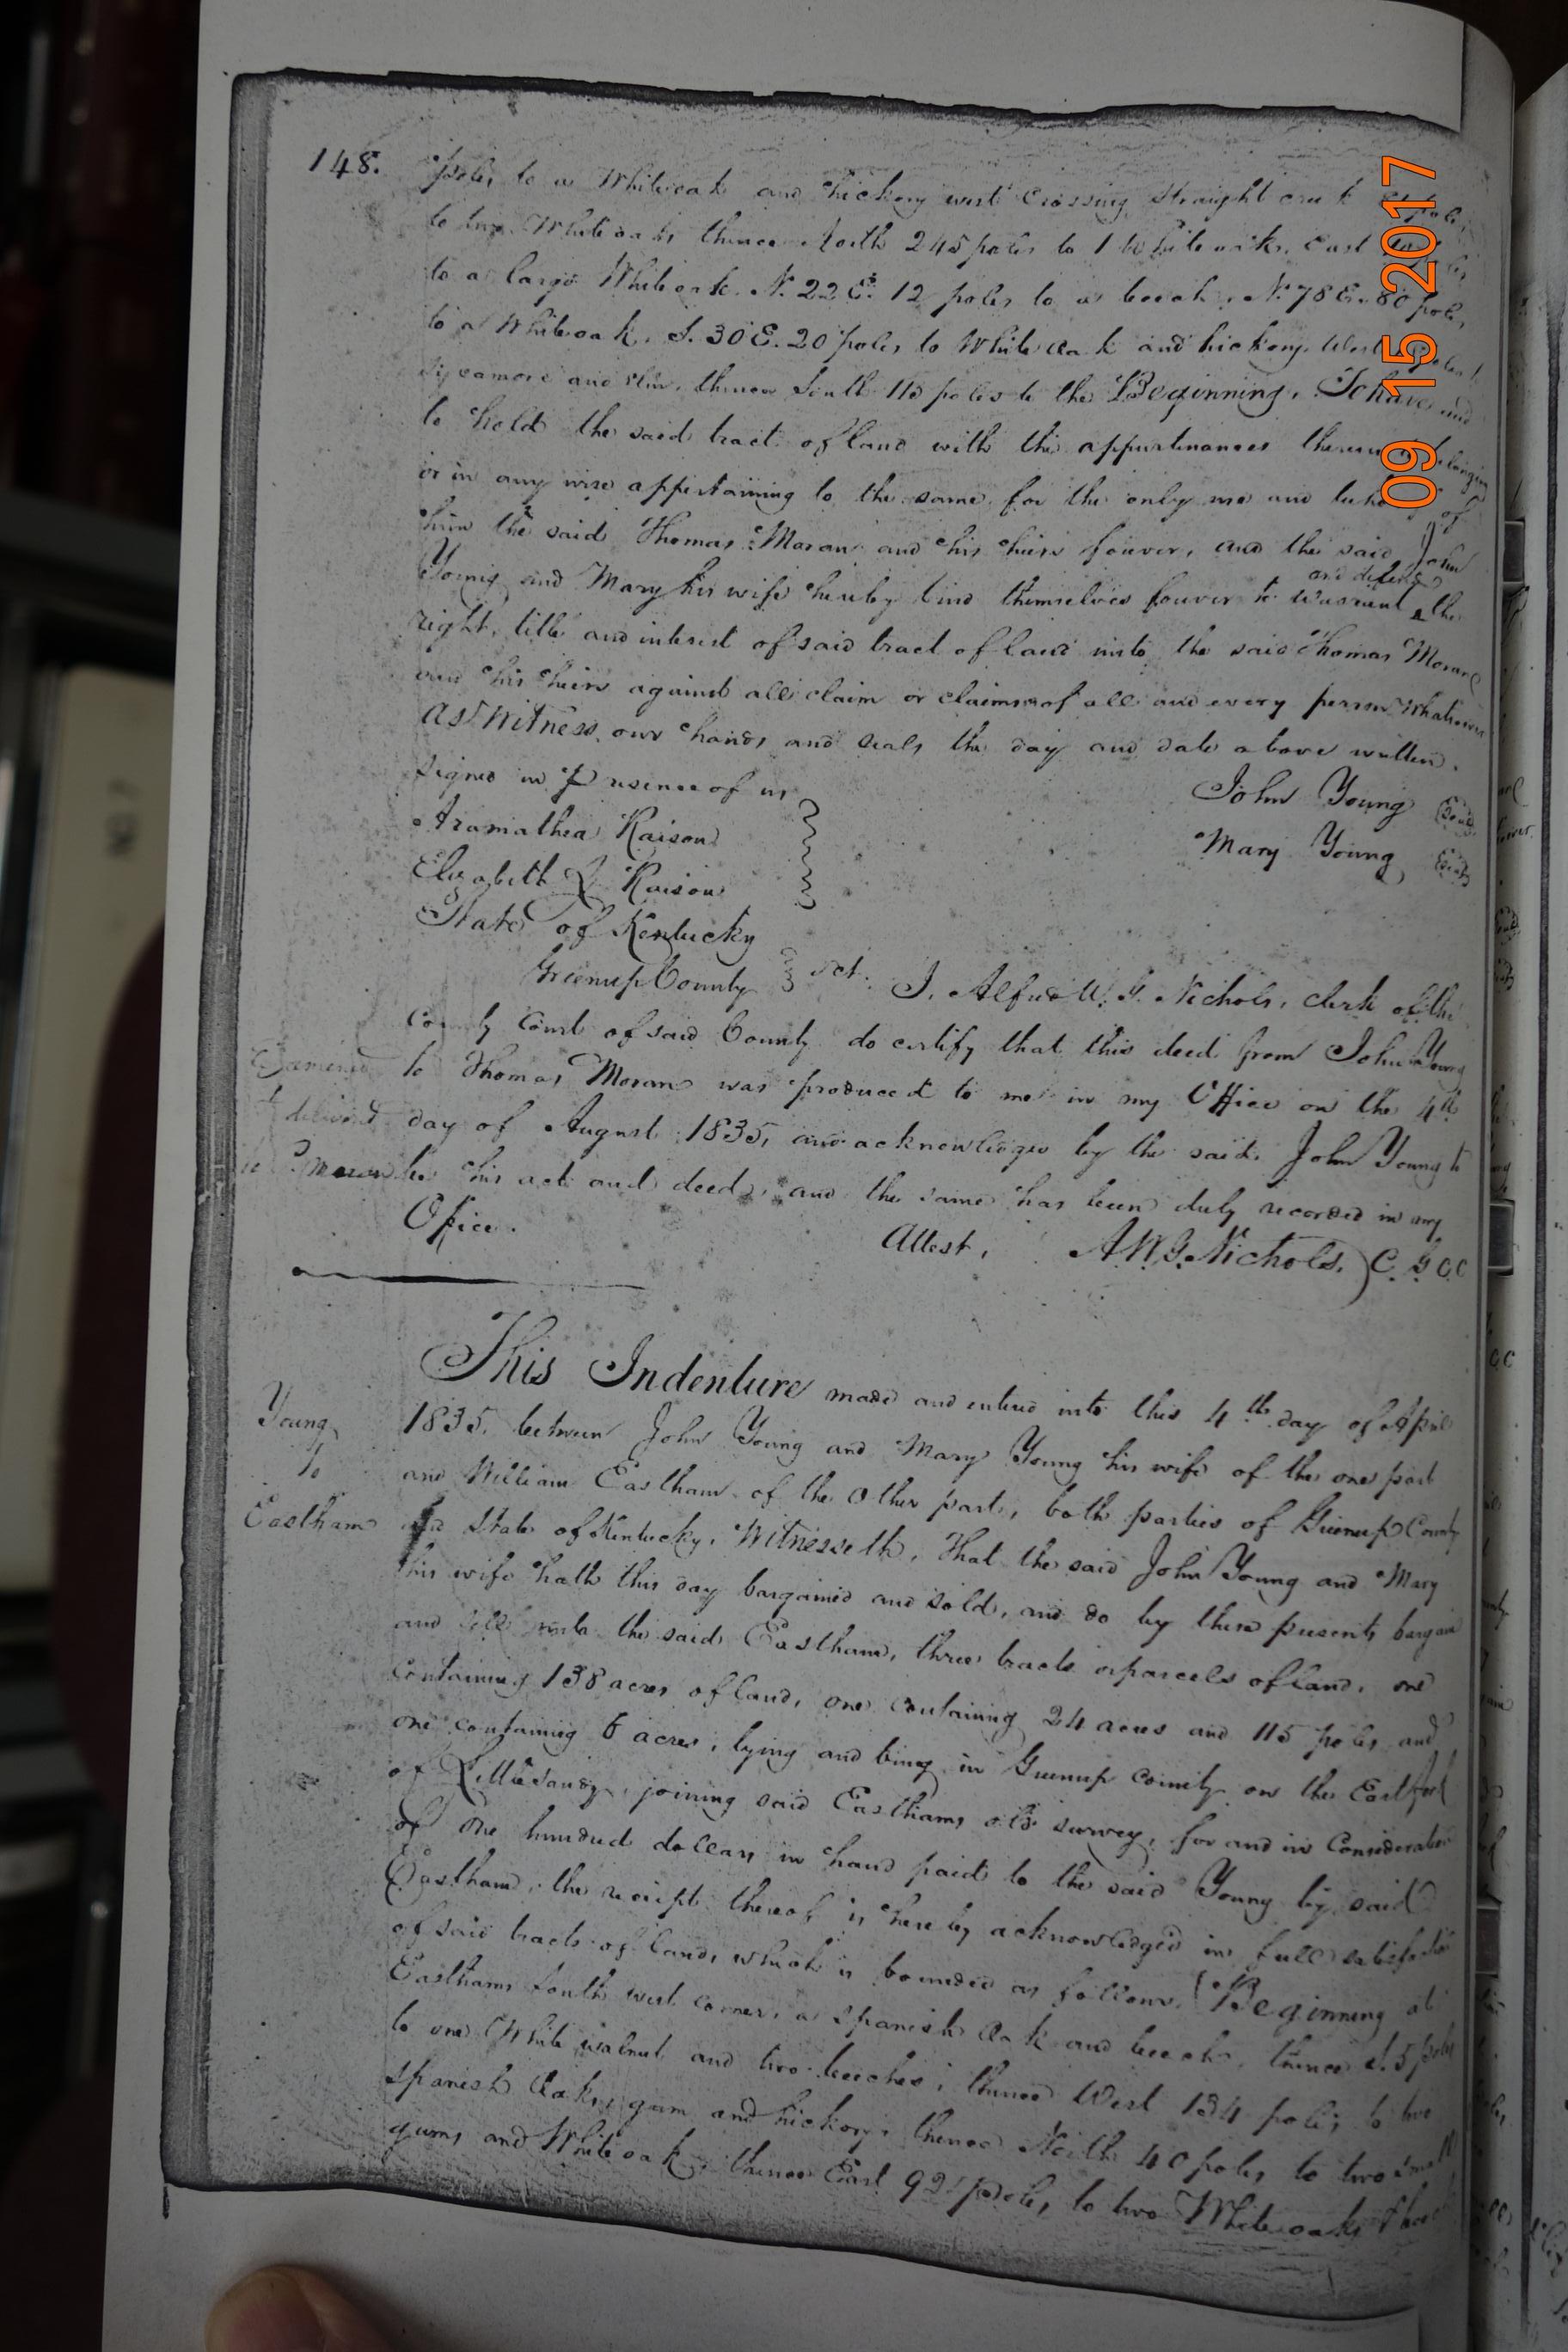 148.
poles to a Whiteoak and hickory west crossing Straight creek poles
to two Whiteoaks thence North 245 poles to 1 Whiteoak, East
to a large Whiteoak. N. 22 E. 12 poles to a beech, N. 78 E. 80 poles
to a Whiteoak, S. 30 E. 20 poles to White oak and hickory. West
Sycamore and elm, thence South 115 poles to the Beginning. To have and
to hold the said tract of land with the appurtenances thereunto belonging
or in any wise appertaining to the same, for the only use and of
him the said Thomas Moran and his heirs forever, and the said John
Young and Mary his wife hereby bind themselves forever to warrant and defend the
right, title and interest of said tract of land unto the said Thomas Moran
and his heirs against all claim or claims of all and every person Whatsoever
As Witness our hands and seals the day and date above written.
Signed in Presence of us
Aramathea Raison
Elizabeth Raison
John Young Seal
Mary Young Seal
State of Kentucky
Greenup County Sct. I, Alfred W. G. Nichols, clerk of the
County Court of said County do certify that this deed from John Young
to Thomas Moran was produced to me in my Office on the 4th
day of August 1835, and acknowledged by the said John Young to
be his act and deed, and the same has been duly recorded in my
Office.
Attest, A. W. G. Nichols, C. G. C. C
Examined
& delivered
to Moran
This Indenture made and entered into this 4th day of April
1835, between John Young and Mary Young his wife of the one part
and William Eastham of the Other part, both parties of Greenup County
and State of Kentucky, Witnesseth, That the said John Young and Mary
his wife hath this day bargained and sold, and do by these presents bargain
and sell unto the said Eastham, three tracts or parcels of land, one
Containing 138 acres of land, one containing 24 acres and 115 poles and
one containing 6 acres, lying and being in Greenup County on the East fork
of Little Sandy, joining said Easthams old survey, for and in Consideration
of One hundred dollars in hand paid to the said Young by said
Eastham, the receipt thereof is hereby acknowledged in full satisfaction
of said tracts of land, which is bounded as follows, Beginning at
Easthams South west corner, a Spanish Oak and beech, thence S. 5 poles
to one White walnut and two beeches, thence West 134 poles to two
Spanish Oaks, gum and hickory, thence North 40 poles, to two small
gums and Whiteoak, thence East 92 poles, to two Whiteoaks thence
Young
To
Eastham
09 15 2017